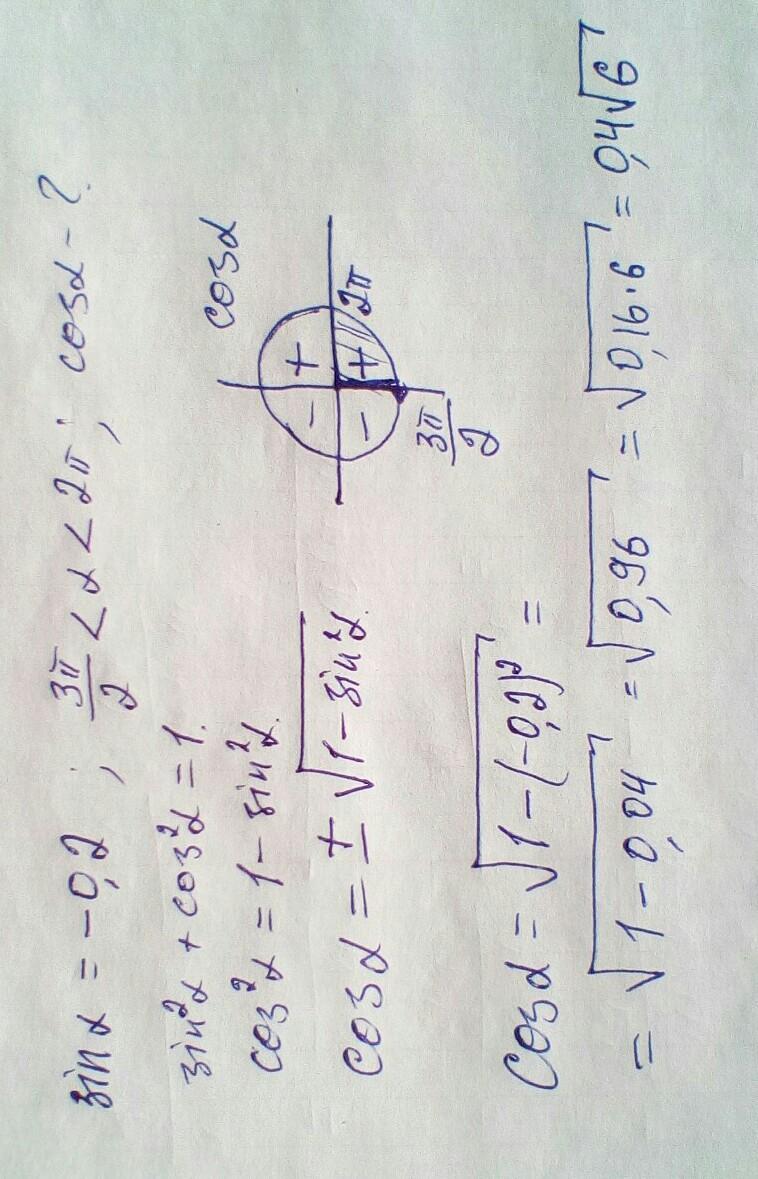 sinα = -0,2 ; 3π/2 < α < 2π ; cosα - ?
sin²α + cos²α = 1.
cos²α = 1 - sin²α.
cosα = ± √(1 - sin²α).
cosα
+
-
+
-
2π
3π/2
cosα = √(1 - (-0,2)²) =
= √(1 - 0,04) = √0,96 = √(0,16·6) = 0,4√6